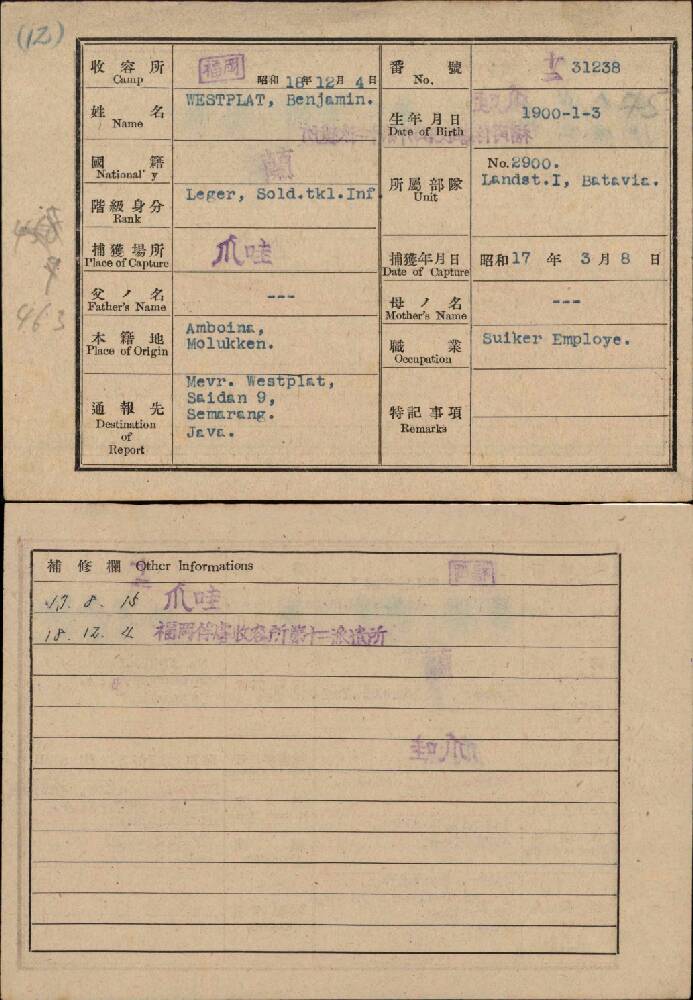 (12)
收容所
Camp
福岡
昭和 18年 12月 4日
番號
No.
31238
姓名
Name
WESTPLAT, Benjamin.
生年月日
Date of Birth
1900-1-3
國籍
Nationality
蘭
所屬部隊
Unit
No.2900.
Landst.I, Batavia.
階級身分
Rank
Leger, Sold.tkl.Inf.
捕獲場所
Place of Capture
爪哇
捕獲年月日
Date of Capture
昭和17年 3月 8日
父ノ名
Father's Name
---
母ノ名
Mother's Name
---
本籍地
Place of Origin
Amboina,
Molukken.
職業
Occupation
Suiker Employe.
通報先
Destination
of
Report
Mevr. Westplat,
Saidan 9,
Semarang.
Java.
特記事項
Remarks
463
補修欄 Other Informations
17. 8. 15 爪哇
18. 12. 4 福岡俘虜收容所第十二派遣所